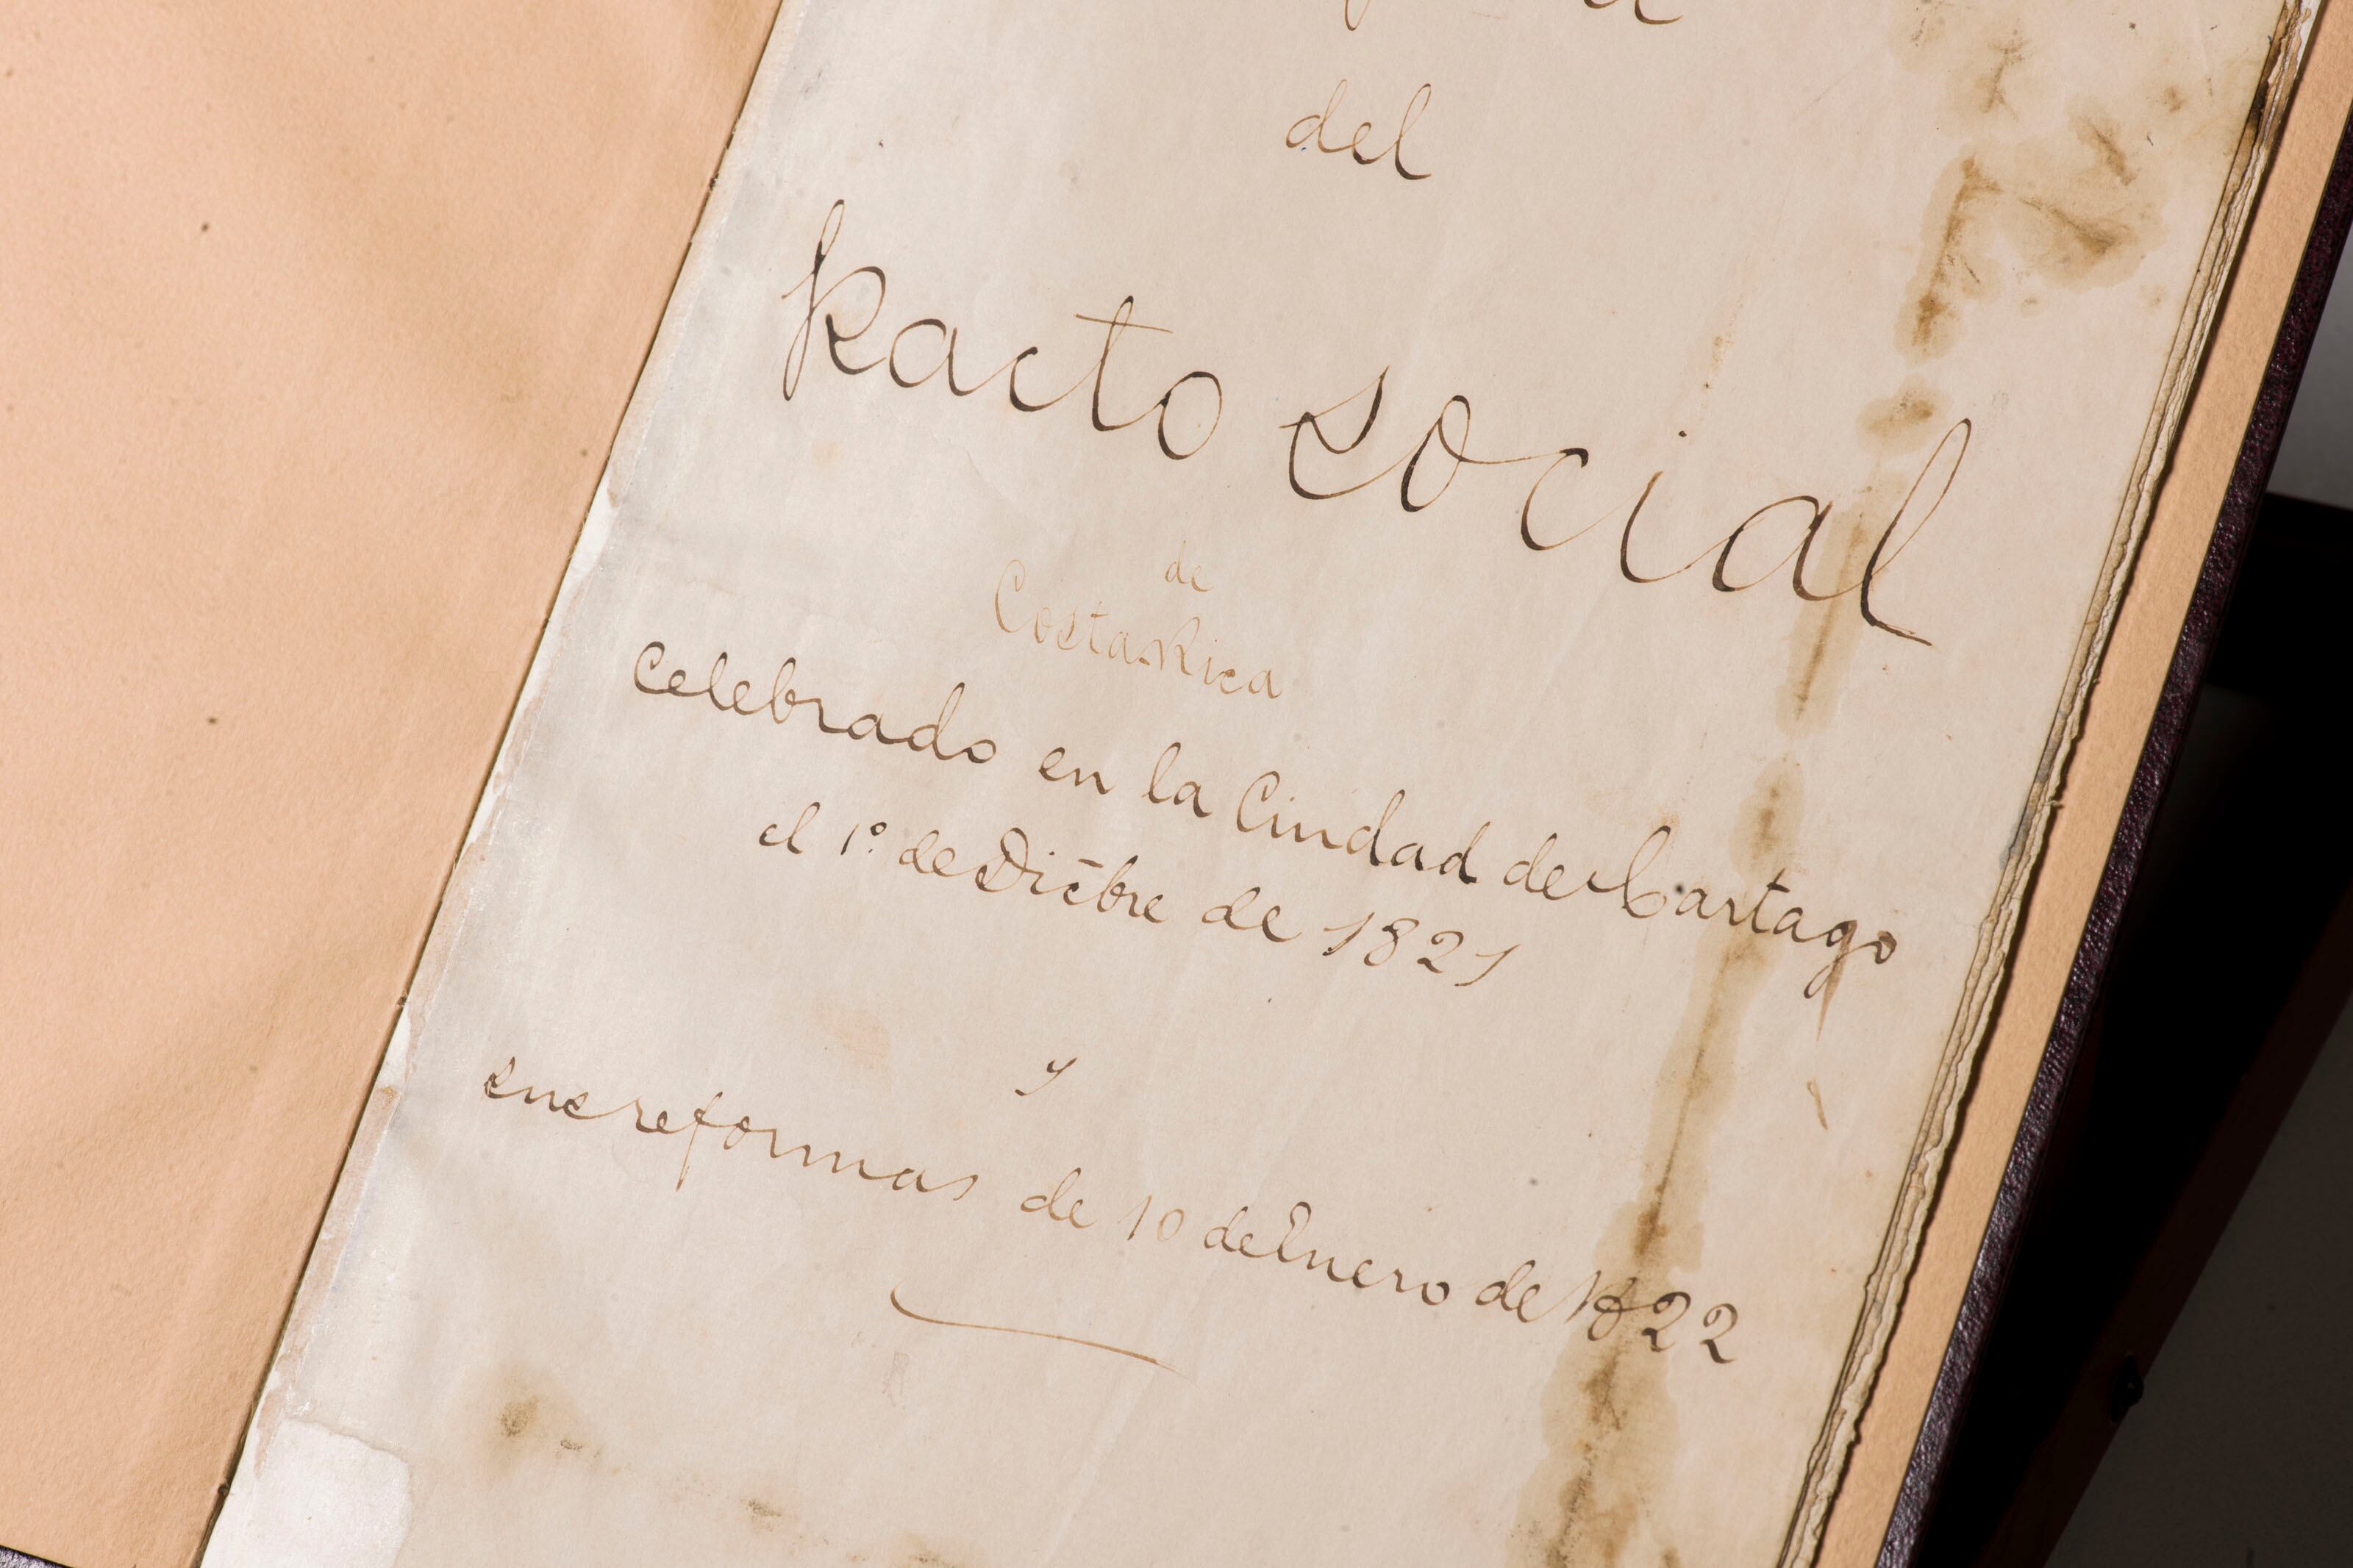 del
Pacto social
de
Costa Rica
Celebrado en la Ciudad de Cartago
el 1º de Dicbre de 1821
y
sus reformas de 10 de Enero de 1822